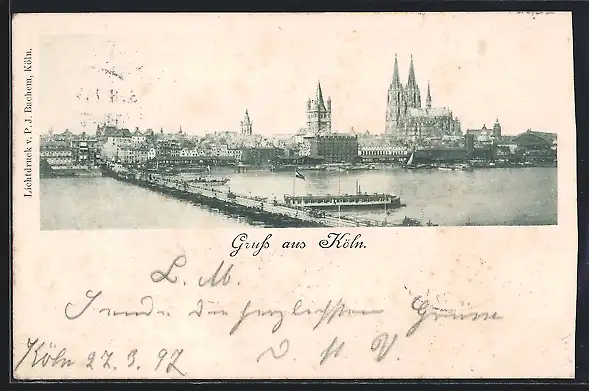 Lichtdruck v. P. J. Bachem, Köln.
Gruß aus Köln.
L. M.
Sende die herzlichsten Grüsse
D. H. V.
Köln 27. 3. 97